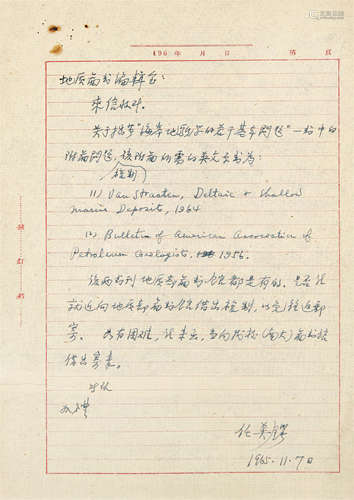 196 年 月 日 第 页
地质图书编辑室:
来信收到。
关于拙著"海岸地貌学的若干基本问题"一书中的
附图问题,该附图所需的英文书为:
复制
(1) Van Straaten, Deltaic & Shallow
marine Deposits, 1964
(2) Bulletin of American Association of
Petroleum Geologists, 1956.
该两书刊地质部图书馆都是有的,
就近向地质部图书馆借出复制,以
。如有困难,请来示,当向我校(南大)图书馆
借出寄来。
此致
敬礼
任美锷
1965.11.7日
装订线